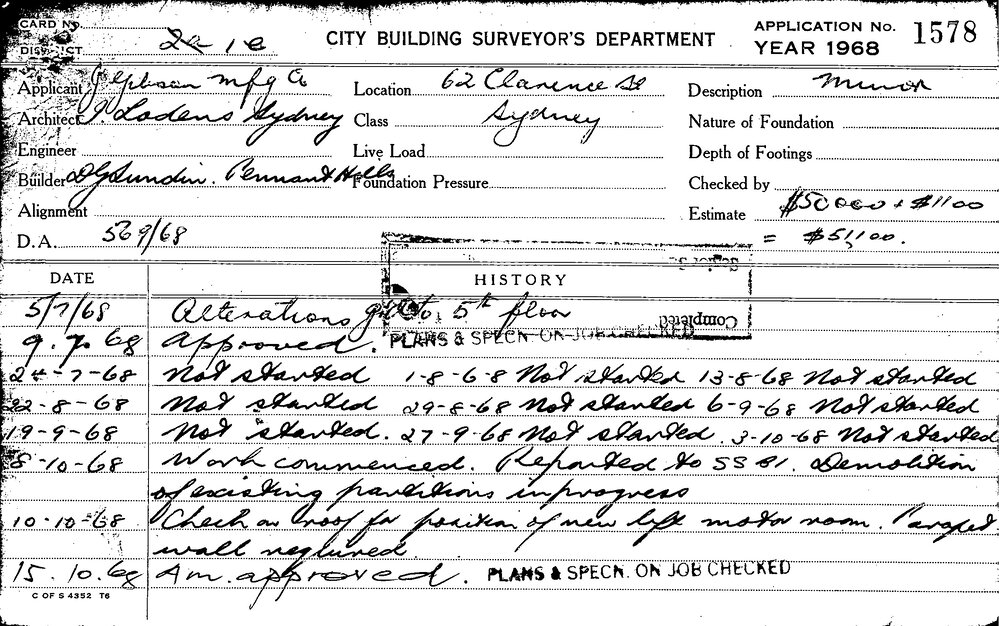 CARD No.
DISTRICT 22 1e
CITY BUILDING SURVEYOR'S DEPARTMENT
APPLICATION No. 1578
YEAR 1968
Applicant J Gibson Mfg Co
Location 62 Clarence St
Description Minor
Architect Lodens Sydney
Class Sydney
Nature of Foundation
Engineer
Live Load
Depth of Footings
Builder Pennant Hills
Foundation Pressure
Checked by
Alignment
Estimate $50000 + $1100
D.A. 569/68
= $51,100.
Completed
DATE HISTORY
5/7/68 Alterations to 5th floor
9.7.68 Approved. PLANS & SPECN. ON JOB CHECKED
24-7-68 Not started 1-8-68 Not started 13-8-68 Not started
22-8-68 Not started 29-8-68 Not started 6-9-68 Not started
19-9-68 Not started. 27-9-68 Not started. 3-10-68 Not started
8-10-68 Work commenced. Reported to SSBI. Demolition
of existing partitions in progress
10-10-68 Check on roof for position of new lift motor room. Parapet
wall required.
15.10.68 Am. approved. PLANS & SPECN. ON JOB CHECKED
C OF S 4352 T6